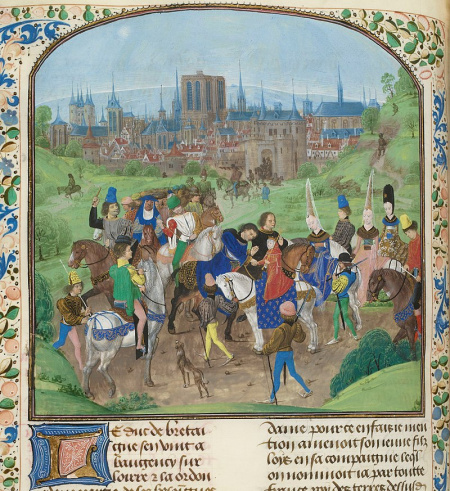 LE duc de bretai
gne sen vint a
baugency sur
loirre et la ordon
dame pour ce en fais ie men
tion amenoit son ieune filz
loys en sa compaignie leql
on nommoit ia par toutte